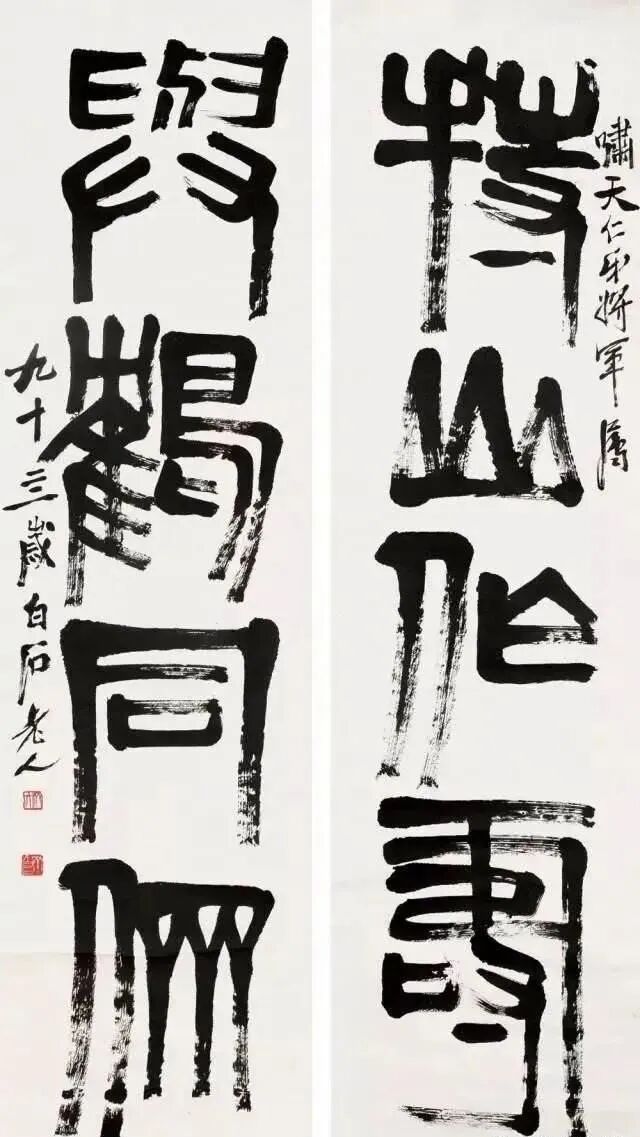 嘯天仁弟將軍屬
持山作壽
與鶴同倆
九十三歲白石老人